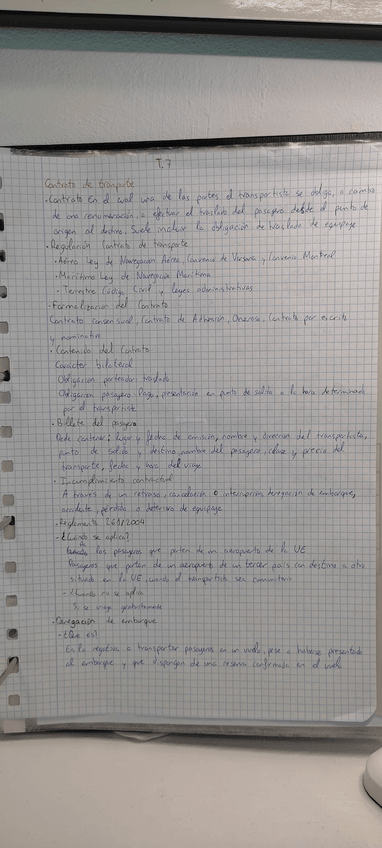 T.7
Contrato de transporte
· Contrato en el cual una de las partes el transportista se obliga, a cambio
de una renumeración, a efectuar el traslado del pasajero desde el punto de
origen al destino. Suele incluir la obligación de traslado de equipaje
· Regulación Contrato de transporte
· Aéreo Ley de Navegación Aérea, Convenio de Varsovia, Convenio Montreal
· Marítimo Ley de Navegación Marítima
· Terrestre Código Civil, y leyes administrativas
· Formalización del Contrato
Contrato consensual, Contrato de Adhesión, Oneroso, Contrato por escrito
y nominativo
· Contenido del Contrato
Carácter bilateral
Obligación porteador traslado
Obligación pasajero Pago, presentación en punto de salida a la hora determinada
por el transportista
· Billete del pasajero
Debe contener: lugar y fecha de emisión, nombre y dirección del transportista,
punto de salida y destino, nombre del pasajero, clase y precio del
transporte, fecha y hora del viaje
· Incumplimiento contractual
A través de un retraso, cancelación o interrupción, denegación de embarque,
accidente, pérdida o deterioro de equipaje
· Reglamento 261/2004
- ¿Cuándo se aplica?
los pasajeros que parten de un aeropuerto de la UE
Pasajeros que partan de un aeropuerto de un tercer país con destino a otro
situado en la UE, cuando el transportista sea comunitario
- ¿Cuándo no se aplica
Si se viaja gratuitamente
· Denegación de embarque
- ¿Qué es?
Es la negativa a transportar pasajeros en un vuelo, pese a haberse presentado
al embarque y que dispongan de una reserva confirmada en el vuelo